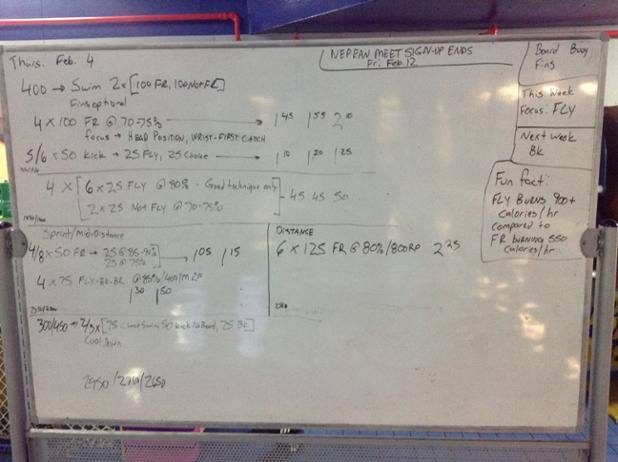 Thurs. Feb. 4
NEPEAN MEET SIGN-UP ENDS
Fri. Feb. 12
Board Buoy
Fins
This Week
Focus: FLY
Next Week
Bk
Fun fact:
FLY BURNS 900+
calories/hr
compared to
FR burning 550
calories/hr.
400 → Swim 2x [100 FR, 100 Not FR]
Fins optional
4 x 100 FR @ 70-75% → 1 45 1 55 2 10
focus → HEAD POSITION, WRIST-FIRST CATCH
5/6 x 50 kick → 25 FLY, 25 Choice → 1 10 1 20 1 25
4 x [6 x 25 FLY @ 80% - Good technique only
2 x 25 Not FLY @ 70-75%] - 45 45 50
Sprint/Mid-Distance
4/8 x 50 FR → 25 @ 85-90%
25 @ 75% → 1 05 1 15
4 x 75 FLY-BK-BR @ 85%
1 30 1 50
DISTANCE
6 x 125 FR @ 80%/800RP 2 25
300/450 → 2/3 x [75 Choice Swim, 50 kick No Board, 25 BK]
Cool Down